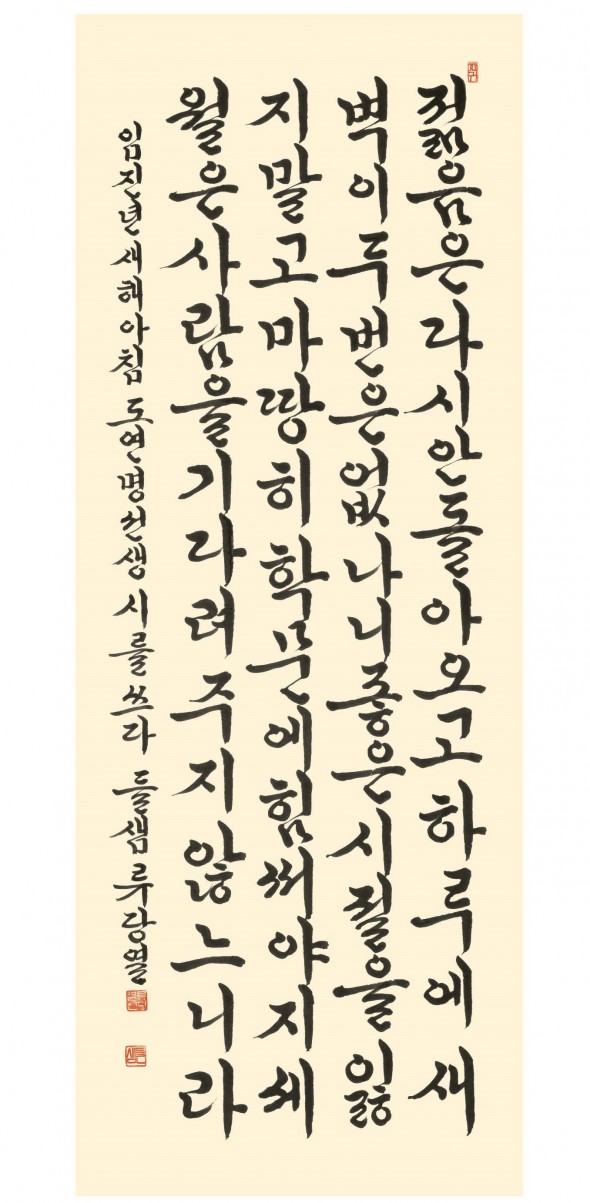 젊음은다시안돌아오고하루에새
벽이두번은없나니좋은시절을잃
지말고마땅히학문에힘써야지세
월은사람을기다려주지않느니라
임진년새해아침 도연명선생 시를쓰다 들샘 류당열